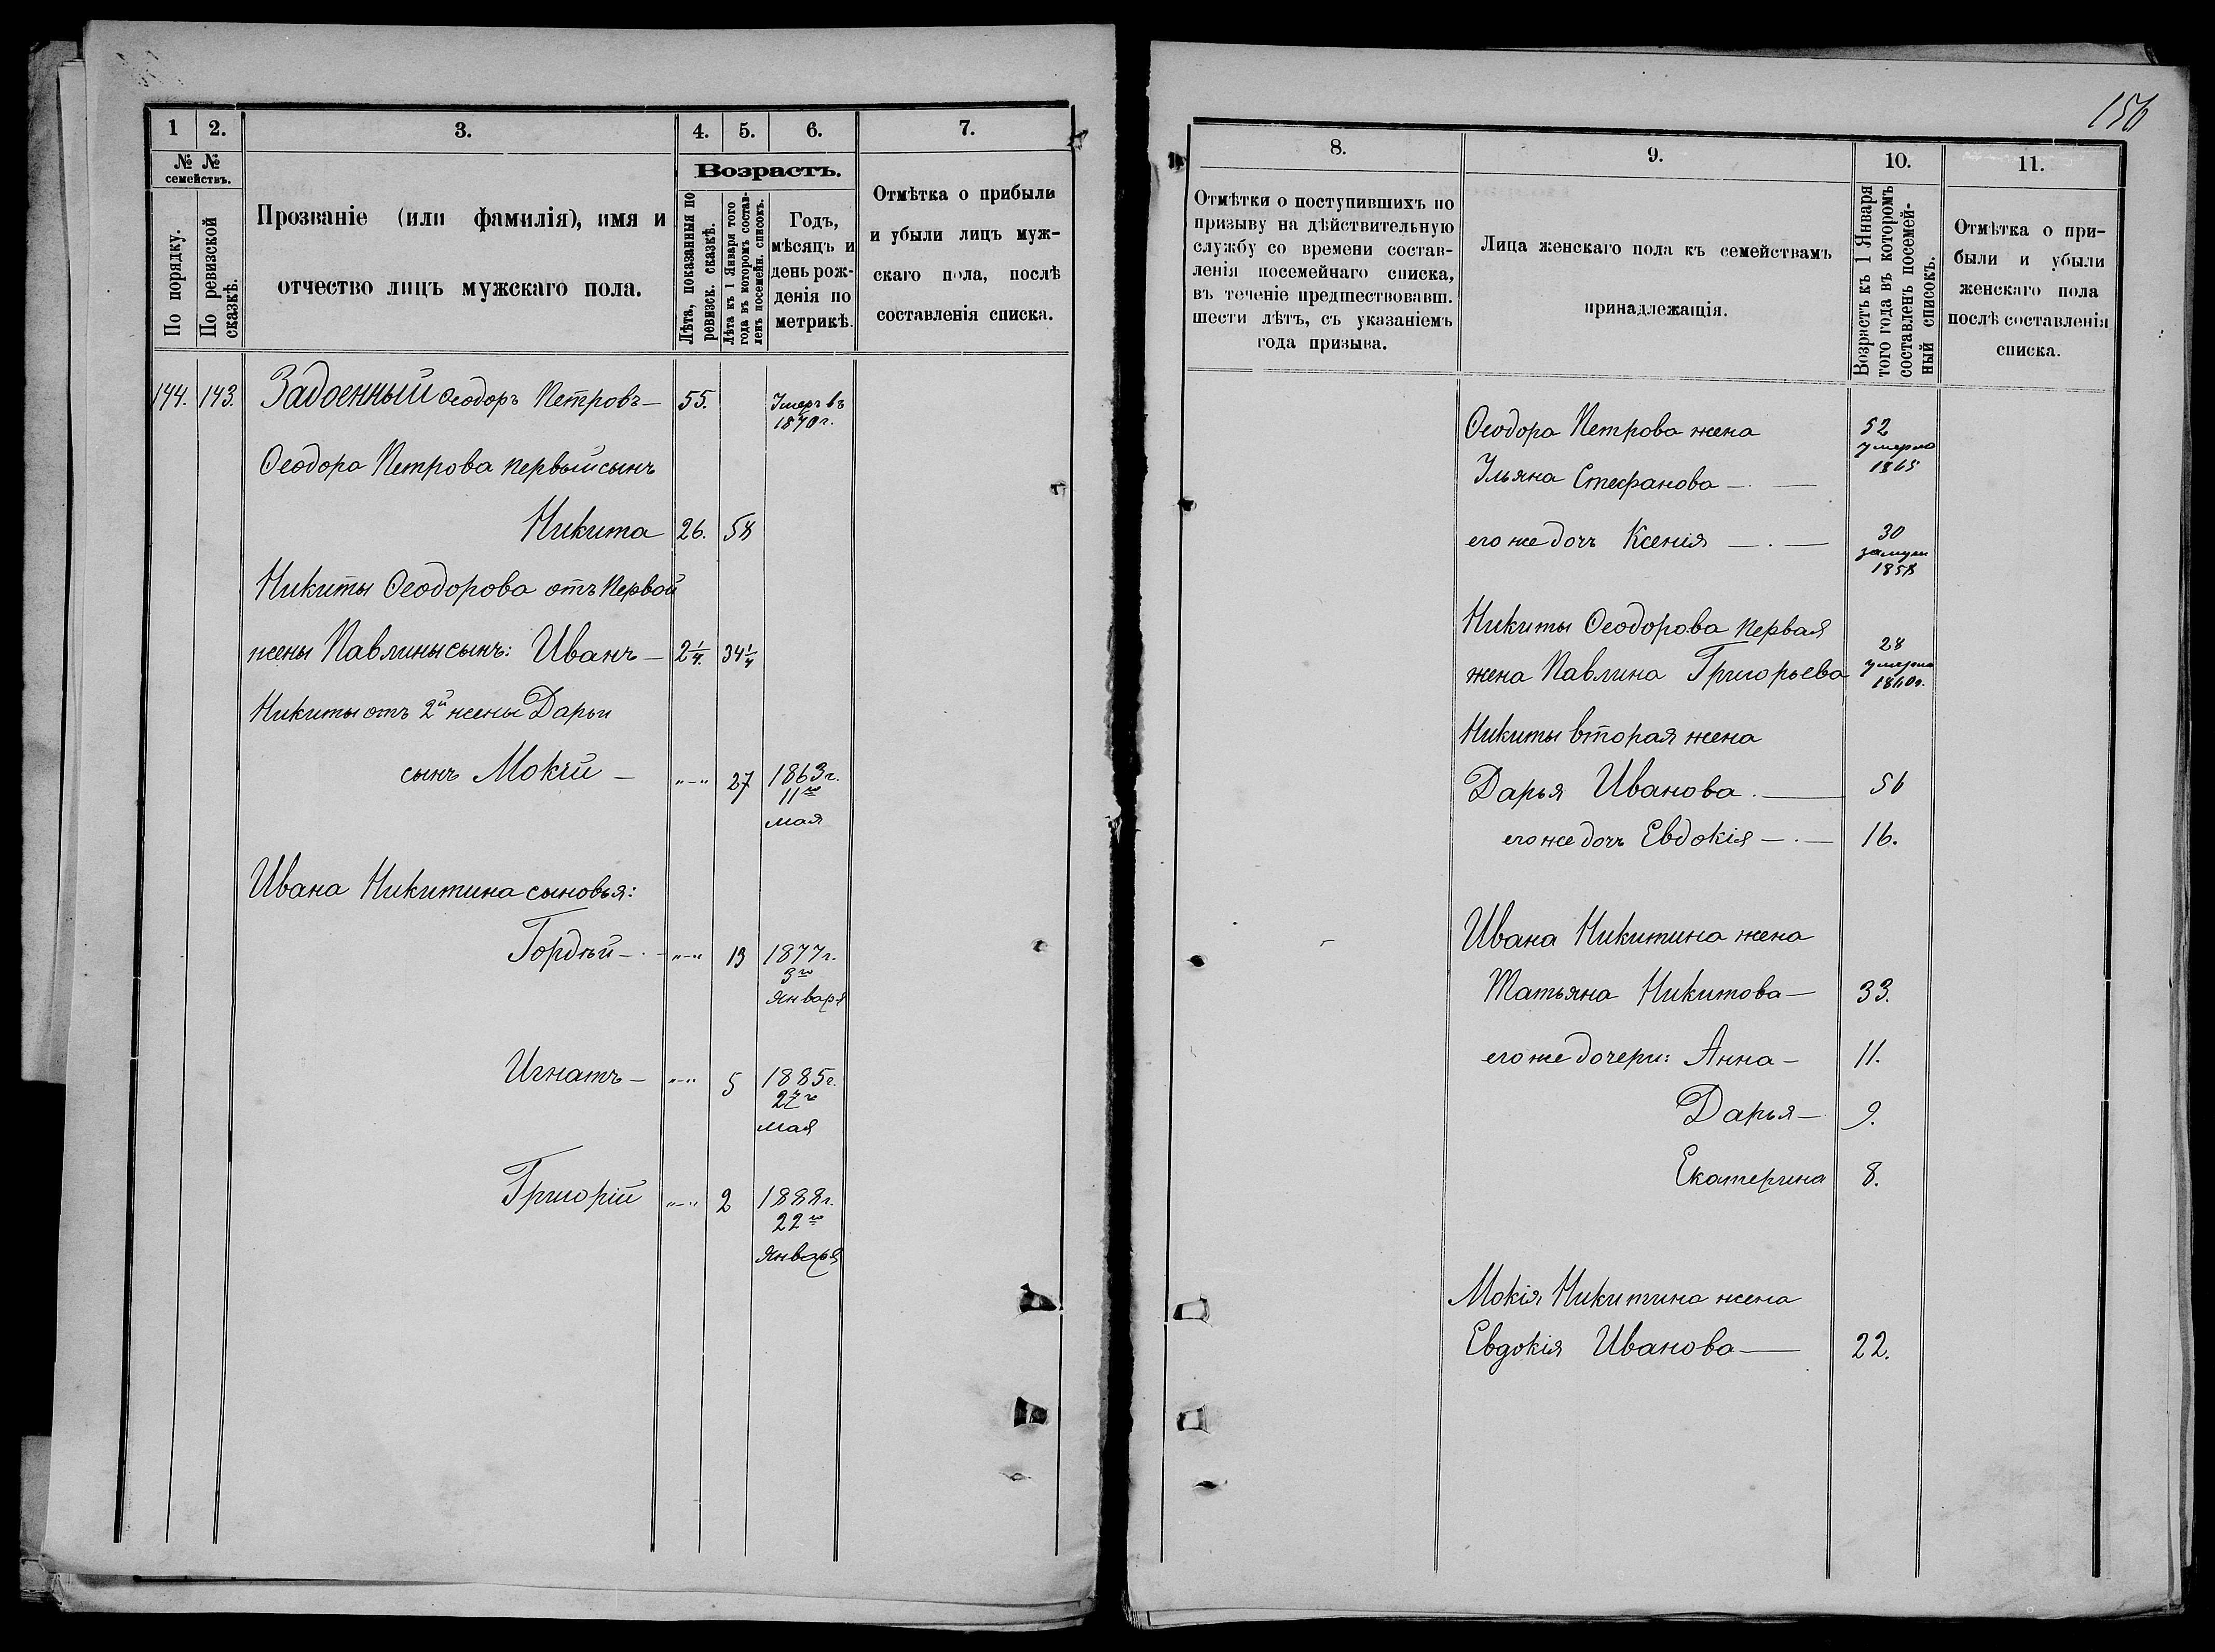 156
1 2. 3. 4. 5. 6. 7.
№ № семействъ.
По порядку.
По ревизской сказкѣ.
Прозваніе (или фамилія), имя и
отчество лицъ мужскаго пола.
Возрастъ.
Лѣта, показанныя по
ревизск. сказкѣ.
Лѣта къ 1 Января того
года въ которомъ состав-
ленъ посемейн. списокъ.
Годъ,
мѣсяцъ и
день рож-
денія по
метрикѣ.
Отмѣтка о прибыли
и убыли лицъ муж-
скаго пола, послѣ
составленія списка.
144. 143. Задоенный Ѳеодоръ Петровъ — 55. Умеръ въ
1870 г.
Ѳеодора Петрова первый сынъ
Никита 26. 58
Никиты Ѳеодорова отъ первой
жены Павлины сынъ: Иванъ — 2 1/4. 34 1/4
Никиты отъ 2й жены Дарьи
сынъ Мокій — „—„ 27 1863 г.
11го
мая
Ивана Никитина сыновья:
Гордѣй — . — „—„ 13 1877 г.
3го
января
Игнатъ — „—„ 5 1885 г.
27го
мая
Григорій „—„ 2 1888 г.
22го
января
8. 9. 10. 11.
Отмѣтки о поступившихъ по
призыву на дѣйствительную
службу со времени состав-
ленія посемейнаго списка,
въ теченіе предшествовавш.
шести лѣтъ, съ указаніемъ
года призыва.
Лица женскаго пола къ семействамъ
принадлежащія.
Возрастъ къ 1 Января
того года въ которомъ
составленъ посемей-
ный списокъ.
Отмѣтка о при-
были и убыли
женскаго пола
послѣ составленія
списка.
Ѳеодора Петрова жена 52
умерла
1865
Ульяна Стефанова — . —
его же дочь Ксенія — . — 30
замуж
1858
Никиты Ѳеодорова первая
жена Павлина Григорьева 28
умерла
1860 г.
Никиты вторая жена
Дарья Иванова . — 56
его же дочь Евдокія — . — 16.
Ивана Никитина жена
Татьяна Никитова — 33.
его же дочери: Анна — 11.
Дарья — 9.
Екатерина 8.
Мокія Никитина жена
Евдокія Иванова — 22.